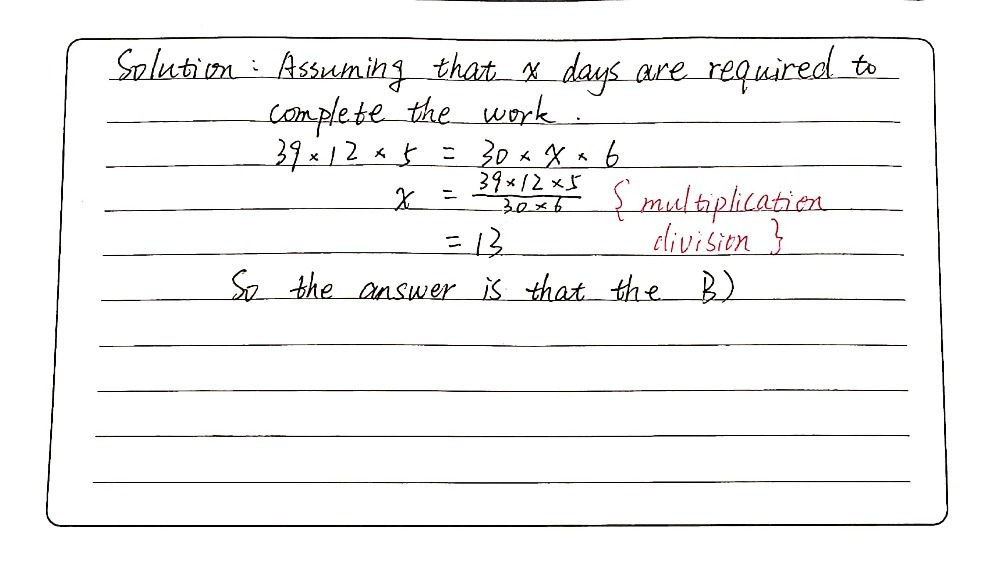 Solution : Assuming that x days are required to
complete the work .
39 × 12 × 5 = 30 × x × 6
x = \frac{39×12×5}{30×6} { multiplication
= 13 division }
So the answer is that the B)